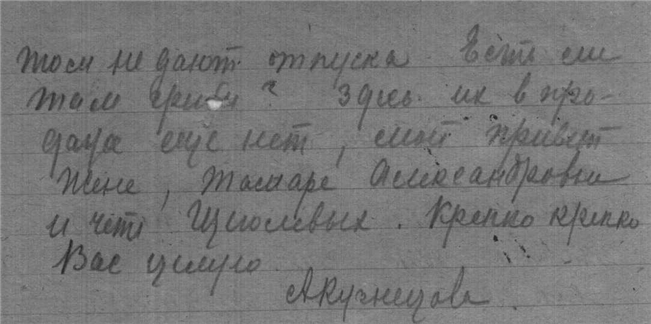 том не дают отпуска. Есть ли
там грибы? Здесь их в про-
даже еще нет, мой привет
Жене, Тамаре Александровне
и чете. Крепко крепко
Вас целую
АКузнецова.